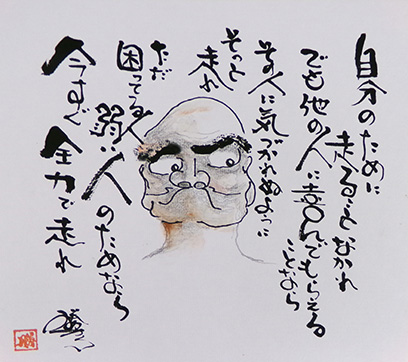 自分のために
走ることなかれ
でも他の人に喜んでもらえる
ことなら
その人に気づかれぬように
そっと
走れ
ただ
困ってる人
弱い人のためなら
今すぐ全力で走れ